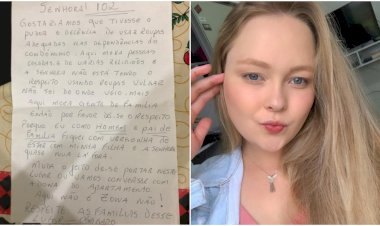 SENHORA! 102
GOSTARIAMOS QUE TIVESSE O
PUDOR E DECÊNCIA DE USAR ROUPAS
ADEQUADAS NAS DEPENDÊNCIAS DO
CONDOMÍNIO. AQUI MORA PESSOAS
CASADAS E DE VÁRIAS RELIGIÕES E
A SENHORA NÃO ESTÁ TENDO O
RESPEITO USANDO ROUPAS VULGAR
NÃO SEI DE ONDE VEIO MAIS
AQUI MORA GENTE DE FAMÍLIA
ENTÃO POR FAVOR DÊ-SE O RESPEITO
PORQUE EU COMO HOMEM E PAI DE
FAMÍLIA FIQUEI COM VERGONHA DE
ESTAR COM MINHA FILHA E A SENHORA
QUASE NUA LÁ FORA
MUDA O JEITO DE SE PORTAR NESTE
LUGAR OU VAMOS CONVERSAR COM
A DONA DO APARTAMENTO
AQUI NÃO É ZONA NÃO!
RESPEITE AS FAMÍLIAS DESSE
OBRIGADO